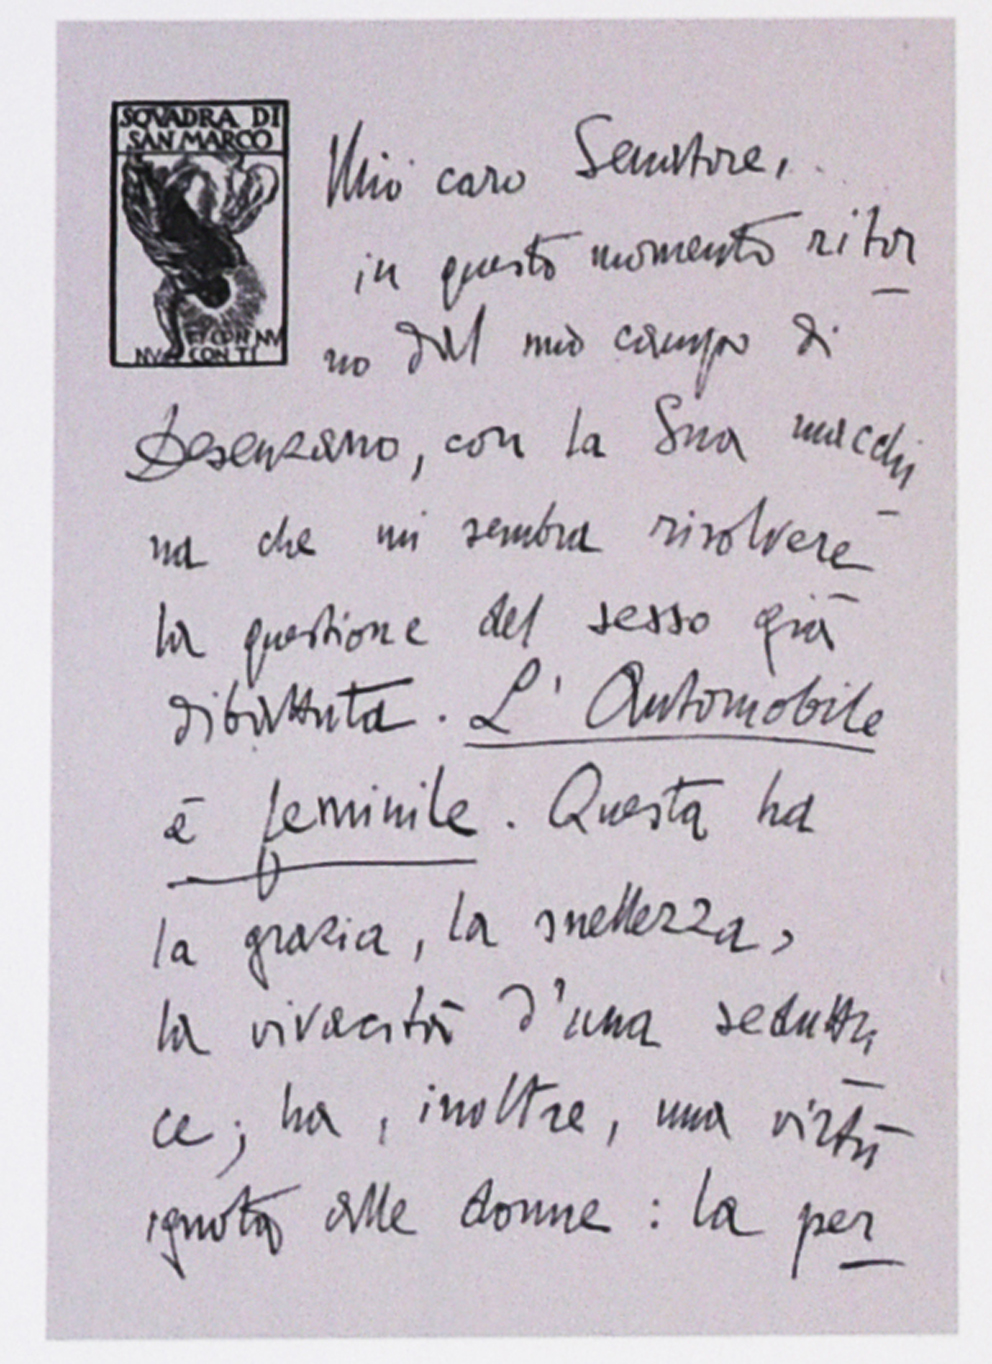 SQVADRA DI
SAN MARCO
ET CON NV
NV CON TI
Mio caro Senatore,
in questo momento ritor
no dal mio campo di
Desenzano, con la Sua macchi
na che mi sembra risolvere
la questione del sesso già
dibattuta. L'Automobile
è feminile. Questa ha
la grazia, la snellezza,
la vivacità d'una seduttri
ce; ha, inoltre, una virtù
ignota alle donne: la per